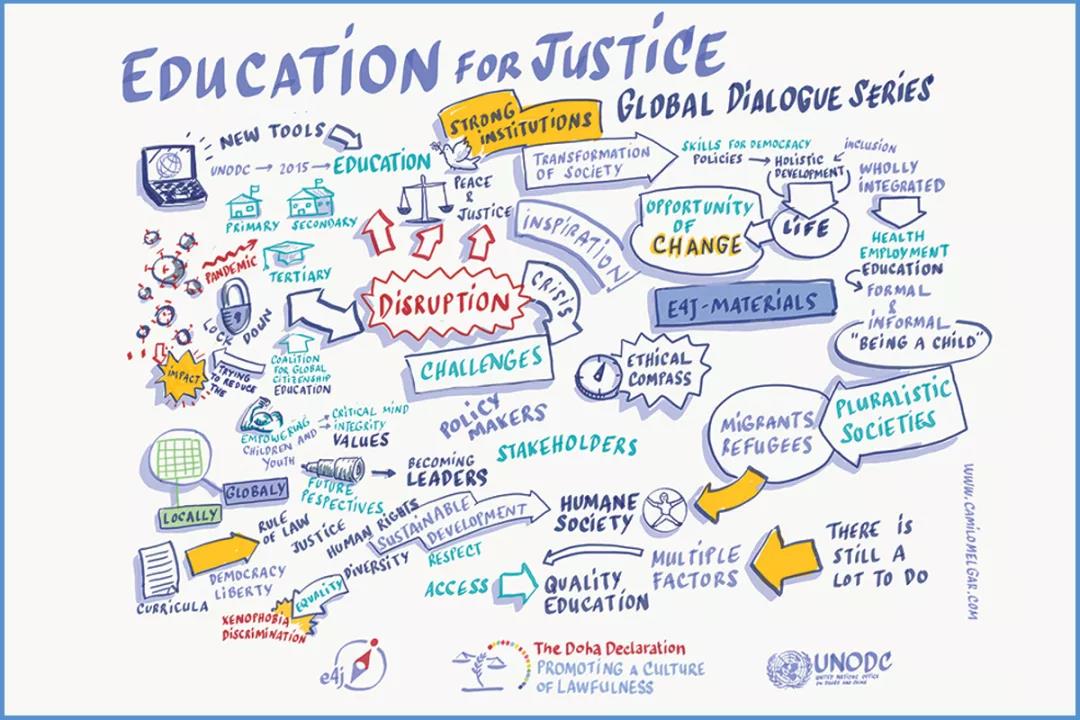 EDUCATION FOR JUSTICE
GLOBAL DIALOGUE SERIES
STRONG
INSTITUTIONS
NEW TOOLS
UNODC → 2015 → EDUCATION
PRIMARY SECONDARY
TERTIARY
PANDEMIC
LOCK DOWN
IMPACT
TRYING
TO REDUCE
THE
PEACE
&
JUSTICE
TRANSFORMATION
OF SOCIETY
SKILLS FOR DEMOCRACY
POLICIES → HOLISTIC
DEVELOPMENT
INCLUSION
WHOLLY
INTEGRATED
INSPIRATION
OPPORTUNITY
OF
CHANGE
LIFE
HEALTH
EMPLOYMENT
EDUCATION
FORMAL
&
INFORMAL
"BEING A CHILD"
DISRUPTION
CRISIS
E4J-MATERIALS
CHALLENGES
COALITION
FOR GLOBAL
CITIZENSHIP
EDUCATION
ETHICAL
COMPASS
POLICY
MAKERS
STAKEHOLDERS
MIGRANTS
REFUGEES
PLURALISTIC
SOCIETIES
EMPOWERING
CHILDREN AND
YOUTH
CRITICAL MIND
INTEGRITY
VALUES
FUTURE
PESPECTIVES
BECOMING
LEADERS
GLOBALY
LOCALLY
CURRICULA
RULE
OF LAW
JUSTICE
HUMAN RIGHTS
DEMOCRACY
LIBERTY
DIVERSITY
EQUALITY
XENOPHOBIA
DISCRIMINATION
SUSTAINABLE
DEVELOPMENT
RESPECT
HUMANE
SOCIETY
ACCESS
QUALITY
EDUCATION
MULTIPLE
FACTORS
THERE IS
STILL A
LOT TO DO
WWW.CAMILOMELGAR.COM
e4j
The Doha Declaration
PROMOTING A CULTURE
OF LAWFULNESS
UNODC
UNITED NATIONS OFFICE
ON DRUGS AND CRIME